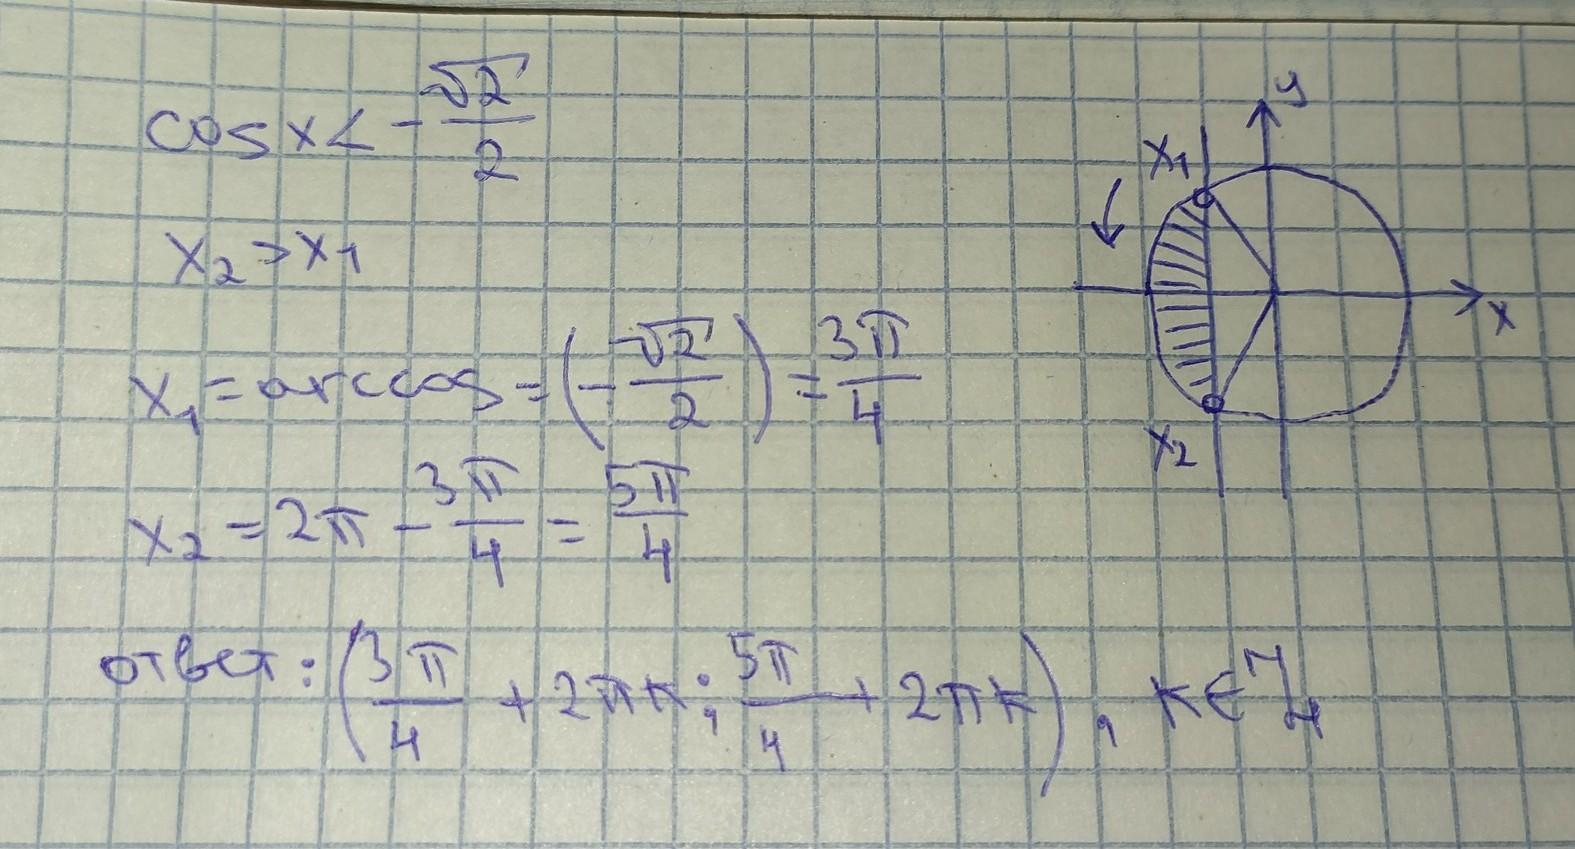 cos x < -√2/2
x₂ > x₁
x₁ = arccos = (-√2/2) = 3π/4
x₂ = 2π - 3π/4 = 5π/4
ответ: (3π/4 + 2πk; 5π/4 + 2πk), k∈Z
y
x₁
x
x₂